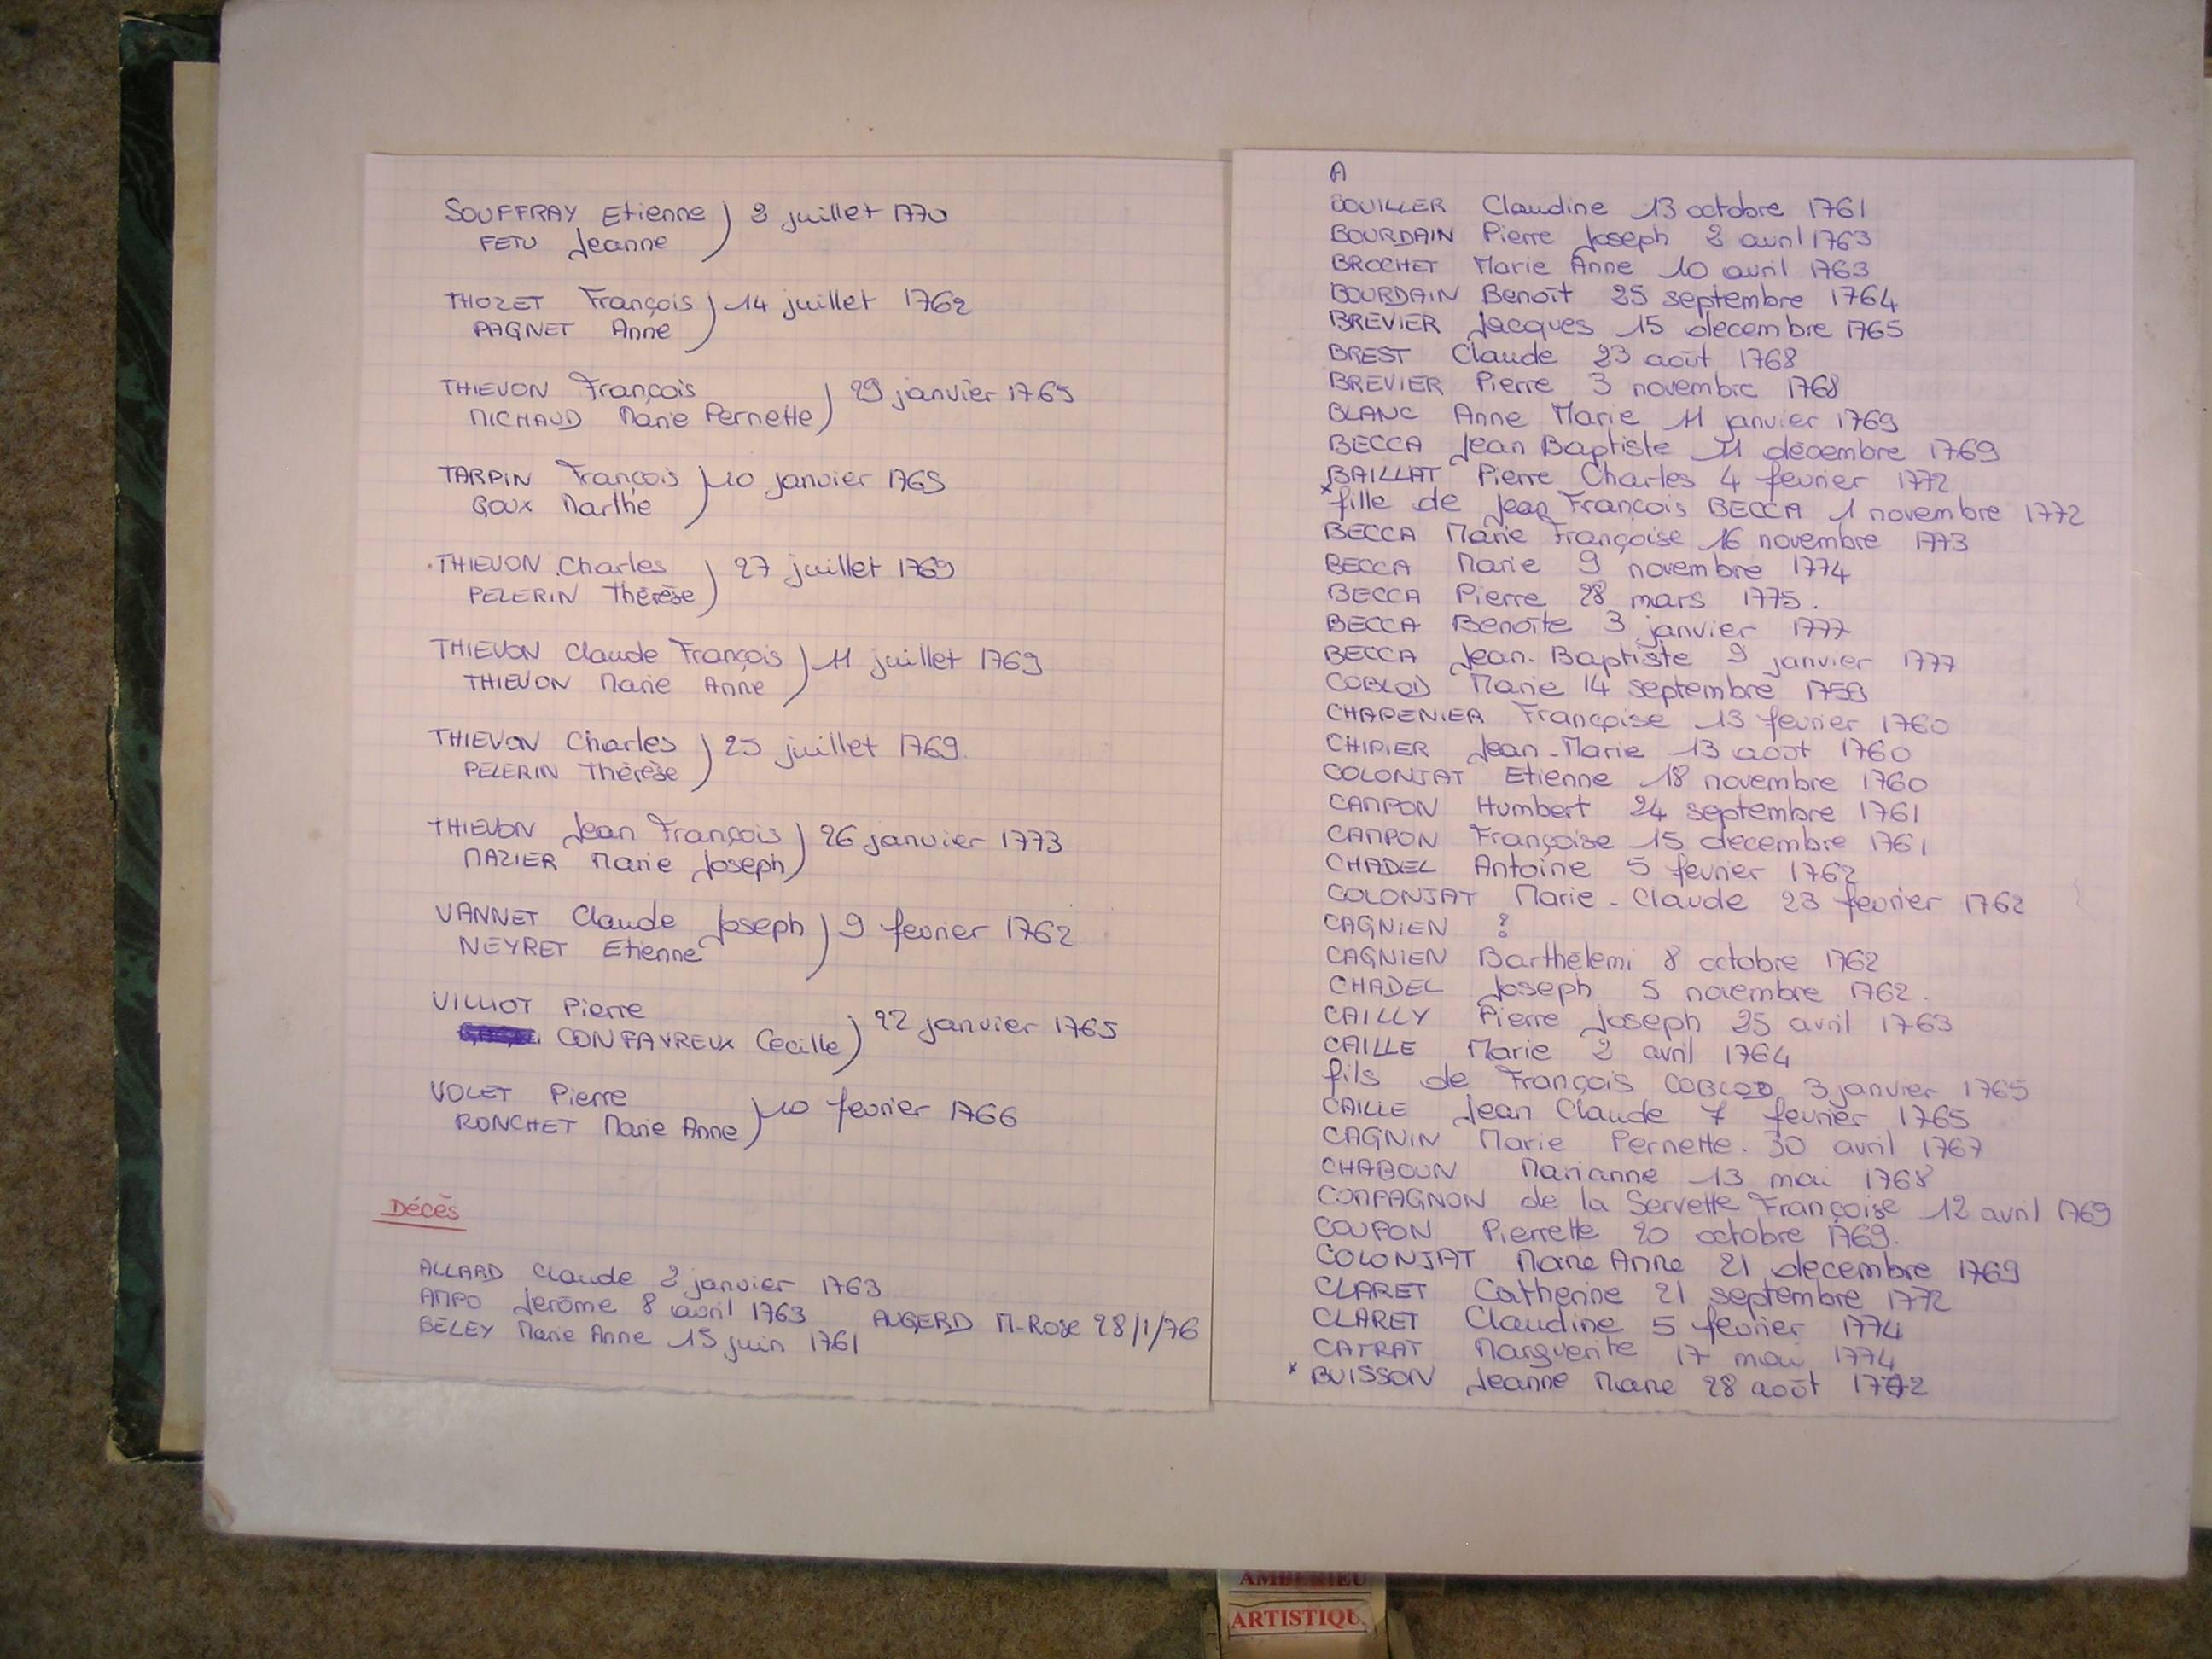 SOUFFRAY Etienne ) 3 juillet 1770
FETU Jeanne
THOZET François ) 14 juillet 1762
PAGNET Anne
THIEVON François ) 29 janvier 1765
MICHAUD Marie Pernette
TARPIN François ) 10 janvier 1765
GOUX Marthe
THIEVON Charles ) 27 juillet 1769
PELERIN Thérèse
THIEVON Claude François ) 11 juillet 1769
THIEVON Marie Anne
THIEVON Charles ) 25 juillet 1769.
PELERIN Thérèse
THIEVON Jean François ) 26 janvier 1773
MAZIER Marie Joseph
VANNET Claude Joseph ) 9 fevrier 1762
NEYRET Etienne
VILLIOT Pierre ) 22 janvier 1765
CONFAVREUX Cécille
VOLET Pierre ) 10 fevrier 1766
RONCHET Marie Anne
Décès
ALLARD Claude 2 janvier 1763
AMPO Jerôme 8 avril 1763 AUGERD M-Rose 28/1/76
BELEY Marie Anne 15 juin 1761
A
BOUILLER Claudine 13 octobre 1761
BOURDAIN Pierre Joseph 2 avril 1763
BROCHET Marie Anne 10 avril 1763
BOURDAIN Benoît 25 septembre 1764
BREVIER Jacques 15 décembre 1765
BREST Claude 23 août 1768
BREVIER Pierre 3 novembre 1768
BLANC Anne Marie 11 janvier 1769
BECCA Jean Baptiste 11 décembre 1769
BAILLAT Pierre Charles 4 fevrier 1772
* fille de Jean François BECCA 1 novembre 1772
BECCA Marie Françoise 16 novembre 1773
BECCA Marie 9 novembre 1774
BECCA Pierre 28 mars 1775.
BECCA Benoîte 3 janvier 1777
BECCA Jean-Baptiste 9 janvier 1777
COBLOD Marie 14 septembre 1759
CHAPENIER Françoise 13 fevrier 1760
CHIPIER Jean-Marie 13 août 1760
COLONJAT Etienne 18 novembre 1760
CAMPON Humbert 24 septembre 1761
CAMPON Françoise 15 decembre 1761
CHADEL Antoine 5 fevrier 1762
COLONJAT Marie-Claude 23 fevrier 1762
CAGNIEN ?
CAGNIEN Barthélemi 8 octobre 1762
CHADEL Joseph 5 novembre 1762.
CAILLY Pierre Joseph 25 avril 1763
CAILLE Marie 2 avril 1764
fils de François COBLOD 3 janvier 1765
CAILLE Jean Claude 7 fevrier 1765
CAGNIN Marie Pernette. 30 avril 1767
CHABOUN Marianne 13 mai 1768
COMPAGNON de la Servette Françoise 12 avril 1769
COUPON Pierrette 20 octobre 1769.
COLONJAT Marie Anne 21 decembre 1769
CLARET Catherine 21 septembre 1772
CLARET Claudine 5 fevrier 1774
CATRAT Marguerite 17 mai 1774
* BUISSON Jeanne Marie 28 août 1772
AMBERIEU
ARTISTIQU